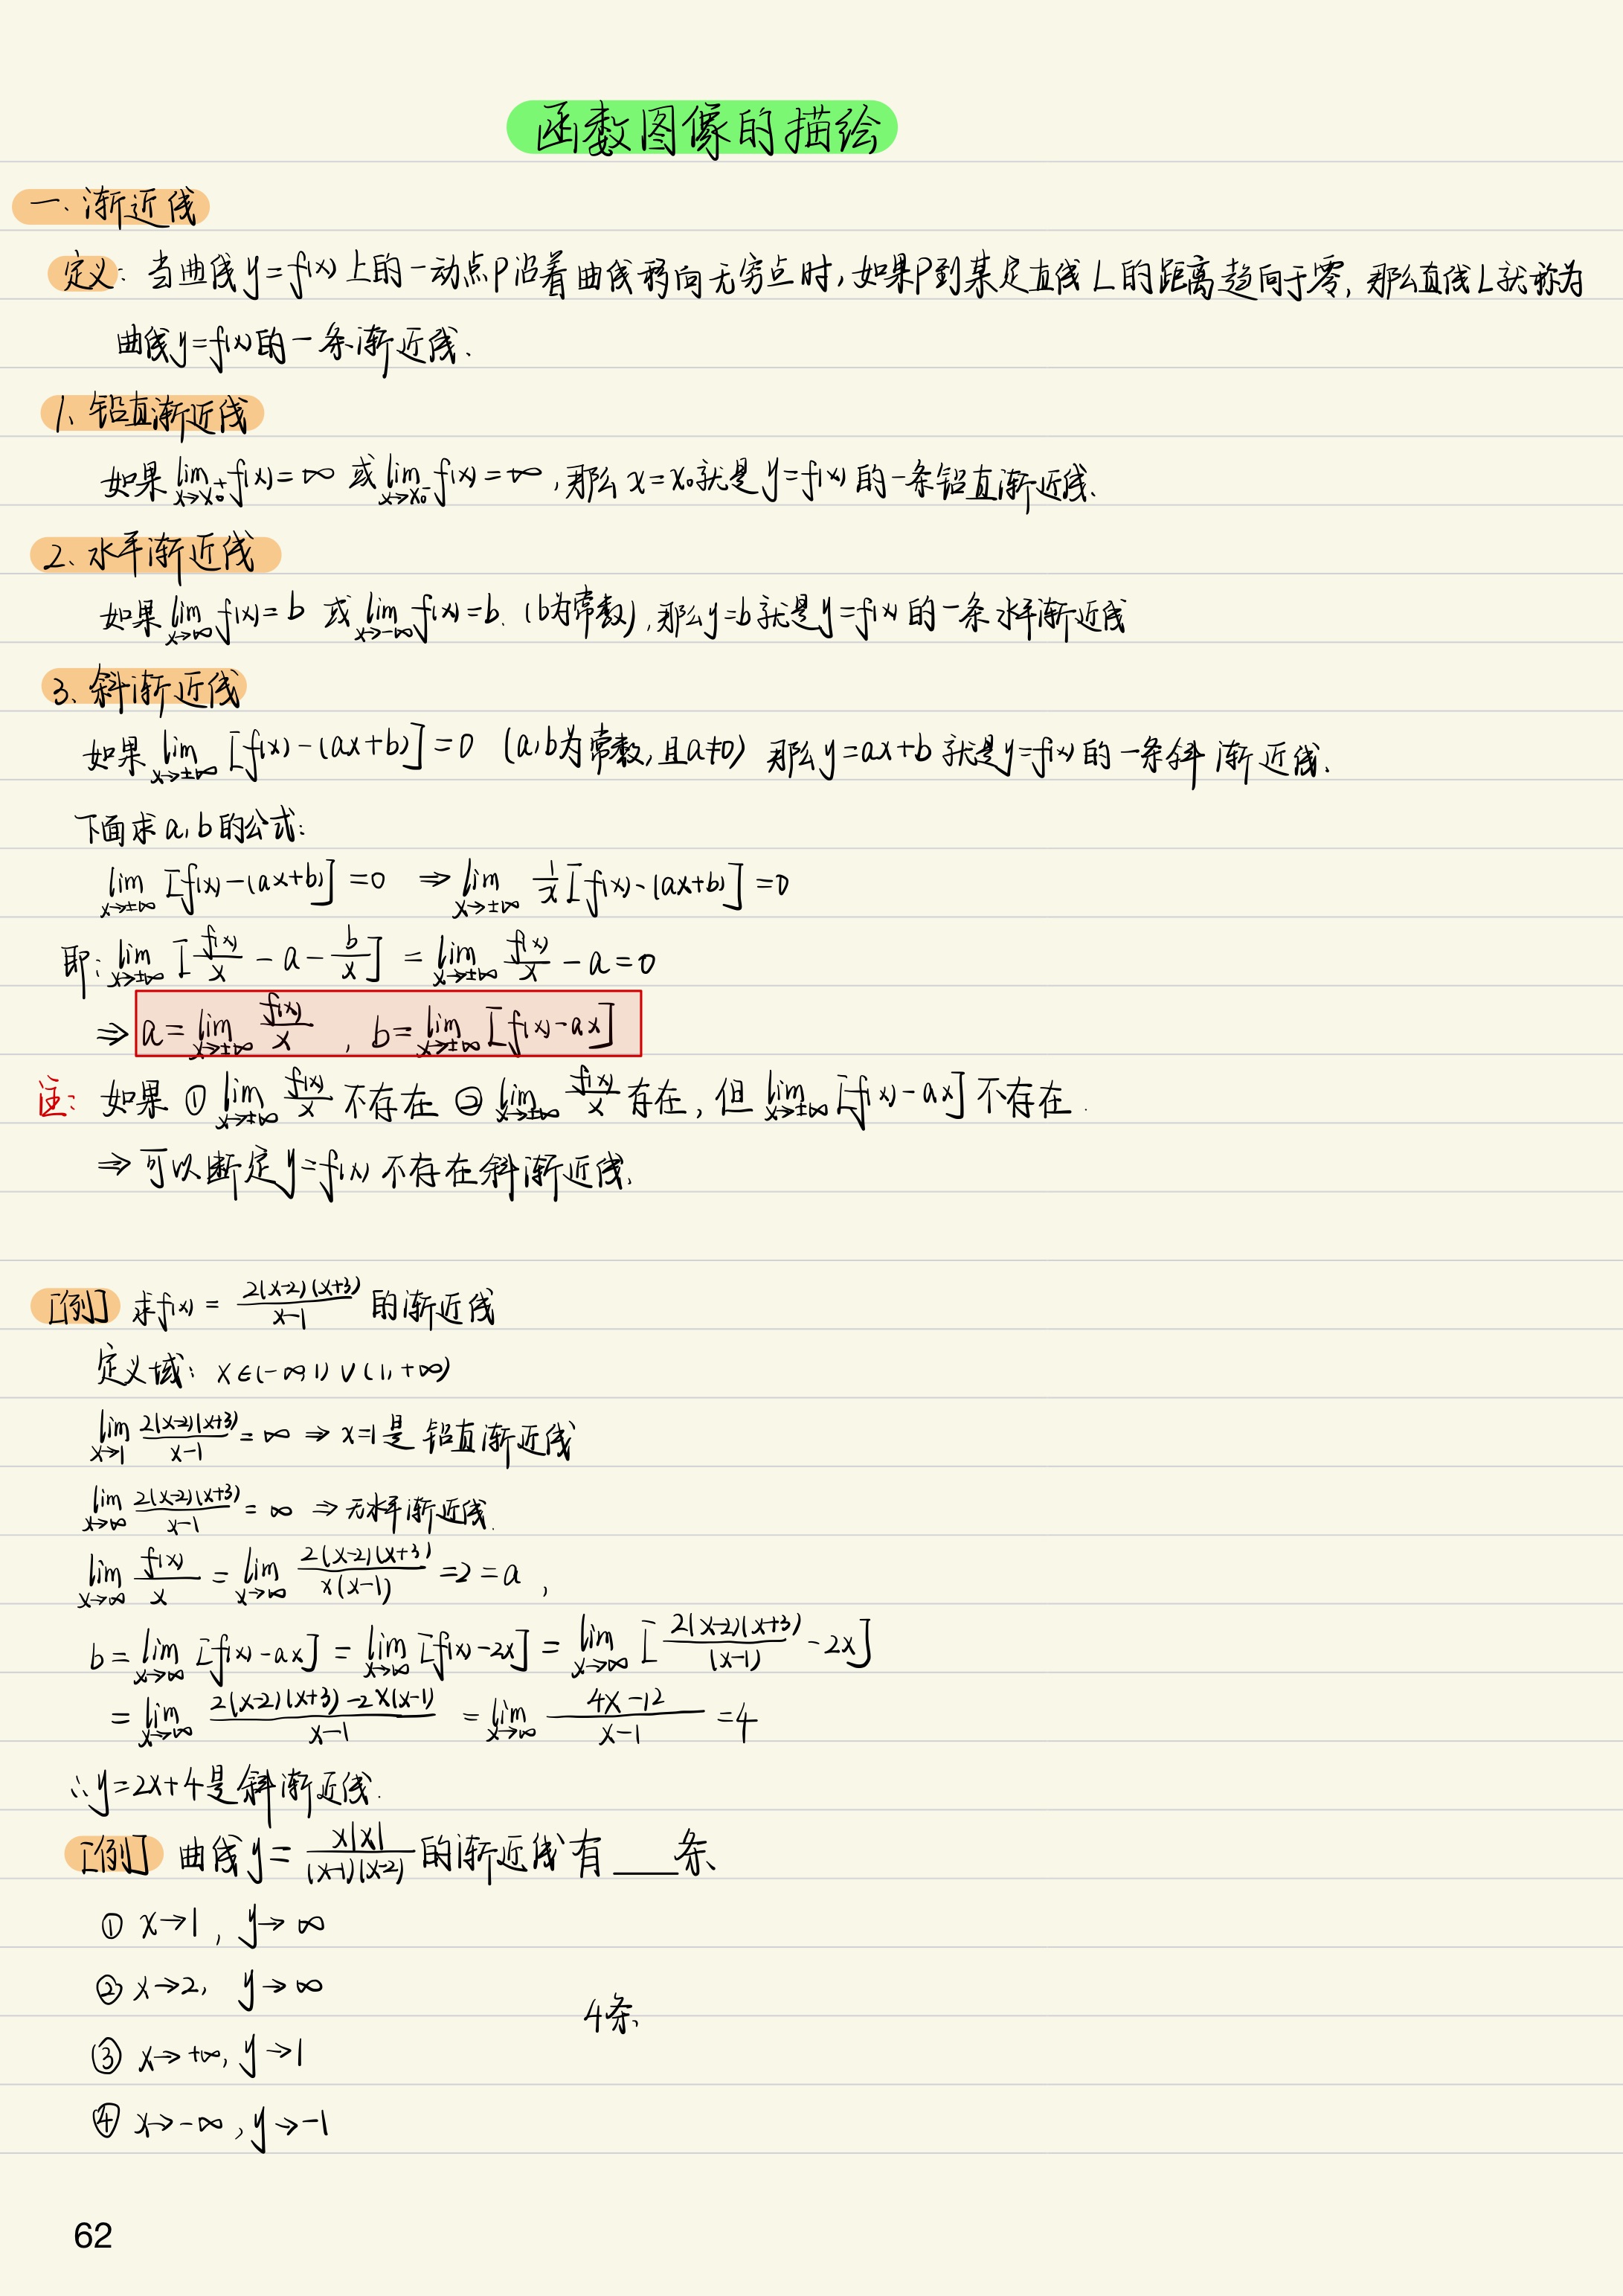 函数图像的描绘
一. 渐近线
定义: 当曲线y=f(x)上的一动点P沿着曲线移向无穷点时,如果P到某定直线L的距离趋向于零, 那么直线L就称为
曲线y=f(x)的一条渐近线.
1、铅直渐近线
如果 lim_{x→x₀⁺} f(x)=∞ 或 lim_{x→x₀⁻} f(x)=∞, 那么 x=x₀就是 y=f(x) 的一条铅直渐近线.
2、水平渐近线
如果 lim_{x→∞} f(x)=b 或 lim_{x→-∞} f(x)=b. (b为常数), 那么y=b就是y=f(x)的一条水平渐近线
3、斜渐近线
如果 lim_{x→±∞} [f(x)-(ax+b)]=0 (a,b为常数,且a≠0) 那么y=ax+b就是y=f(x)的一条斜渐近线.
下面求a,b的公式:
lim_{x→±∞} [f(x)-(ax+b)]=0 ⇒ lim_{x→±∞} 1/x [f(x)-(ax+b)]=0
即: lim_{x→±∞} [f(x)/x - a - b/x] = lim_{x→±∞} f(x)/x - a = 0
⇒ a = lim_{x→±∞} f(x)/x , b = lim_{x→±∞} [f(x)-ax]
注: 如果 ① lim_{x→±∞} f(x)/x 不存在 ② lim_{x→±∞} f(x)/x 存在, 但 lim_{x→±∞} [f(x)-ax] 不存在.
⇒ 可以断定y=f(x)不存在斜渐近线.
[例] 求f(x) = 2(x-2)(x+3)/(x-1) 的渐近线
定义域: x∈(-∞,1)∪(1,+∞)
lim_{x→1} 2(x-2)(x+3)/(x-1) = ∞ ⇒ x=1是铅直渐近线
lim_{x→∞} 2(x-2)(x+3)/(x-1) = ∞ ⇒ 无水平渐近线.
lim_{x→∞} f(x)/x = lim_{x→∞} 2(x-2)(x+3)/x(x-1) = 2 = a ,
b = lim_{x→∞} [f(x)-ax] = lim_{x→∞} [f(x)-2x] = lim_{x→∞} [2(x-2)(x+3)/(x-1) - 2x]
= lim_{x→∞} (2(x-2)(x+3)-2x(x-1))/(x-1) = lim_{x→∞} (4x-12)/(x-1) = 4
∴y=2x+4是斜渐近线.
[例] 曲线y= x|x|/(x-1)(x-2) 的渐近线有___条.
① x→1, y→∞
② x→2, y→∞
4条.
③ x→+∞, y→1
④ x→-∞, y→-1
62